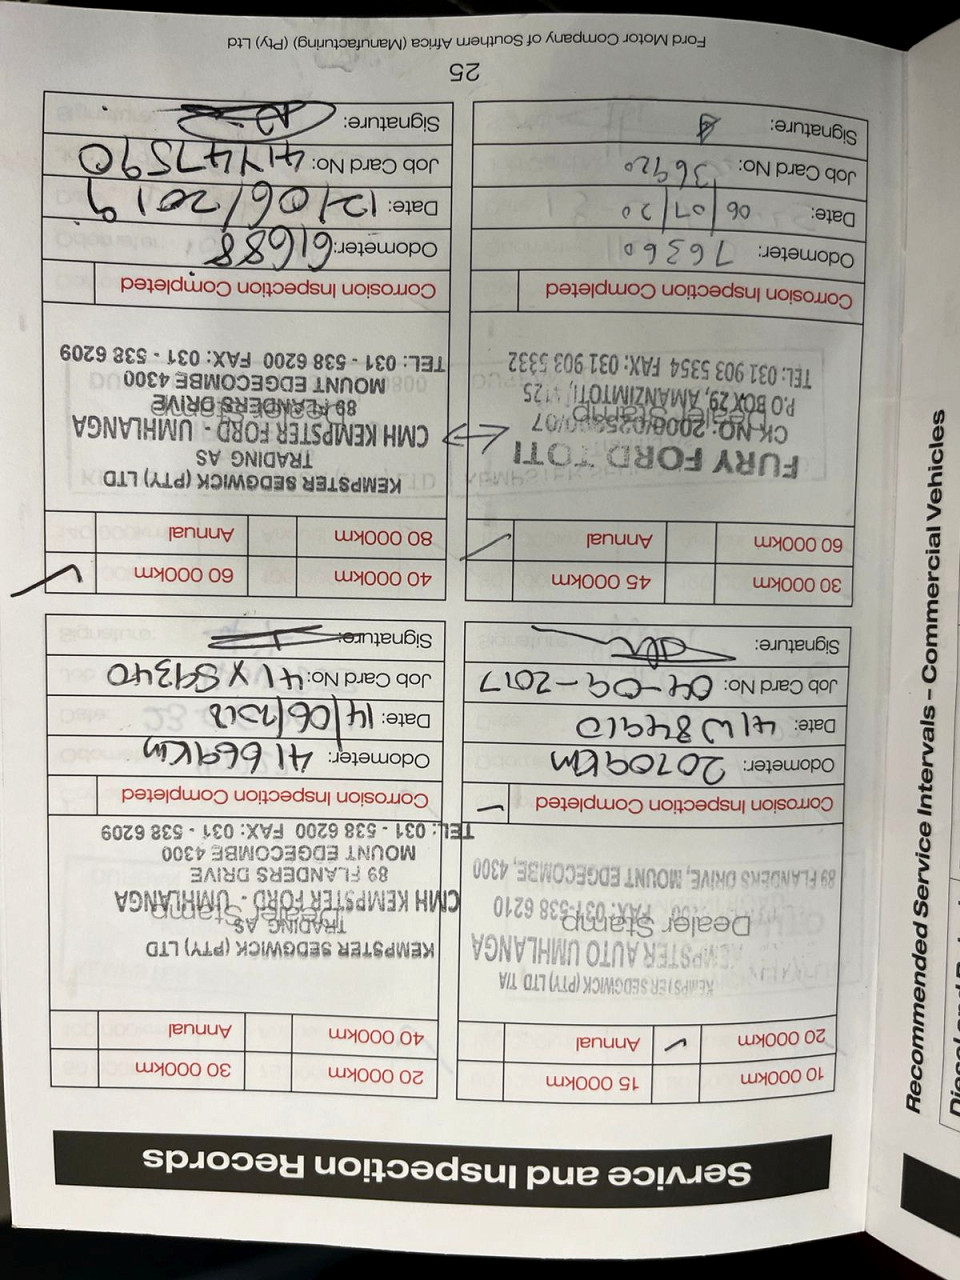 Service and Inspection Records
10 000km 15 000km
20 000km ✓ Annual
KEMPSTER SEDGWICK (PTY) LTD T/A
KEMPSTER AUTO UMHLANGA
Dealer Stamp
FAX: 031-538 6210
89 FLANDERS DRIVE, MOUNT EDGECOMBE, 4300
Corrosion Inspection Completed ✓
Odometer: 20709Km
Date: 41W84910
Job Card No: 04-09-2017
Signature:
20 000km 30 000km
40 000km Annual
KEMPSTER SEDGWICK (PTY) LTD
TRADING AS
Dealer Stamp
CMH KEMPSTER FORD - UMHLANGA
89 FLANDERS DRIVE
MOUNT EDGECOMBE 4300
TEL: 031 - 538 6200 FAX: 031 - 538 6209
Corrosion Inspection Completed
Odometer: 41669Km
Date: 14/06/2018
Job Card No: 41X59340
Signature:
30 000km 45 000km
60 000km Annual ✓
FURY FORD TOTI
CK NO: 2008/025
Dealer Stamp
P.O BOX 29, AMANZIMTOTI, 4125
TEL: 031 903 5354 FAX: 031 903 5332
Corrosion Inspection Completed
Odometer: 76360
Date: 06/07/20
Job Card No: 136920
Signature:
40 000km 60 000km ✓
80 000km Annual
KEMPSTER SEDGWICK (PTY) LTD
TRADING AS
CMH KEMPSTER FORD - UMHLANGA
Dealer Stamp
89 FLANDERS DRIVE
MOUNT EDGECOMBE 4300
TEL: 031 - 538 6200 FAX: 031 - 538 6209
Corrosion Inspection Completed
Odometer: 61688
Date: 12/06/2019
Job Card No: 41475 90
Signature:
25
Ford Motor Company of Southern Africa (Manufacturing) (Pty) Ltd
Recommended Service Intervals - Commercial Vehicles